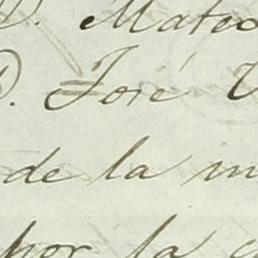 D. Mateo
D. José
de la
por la